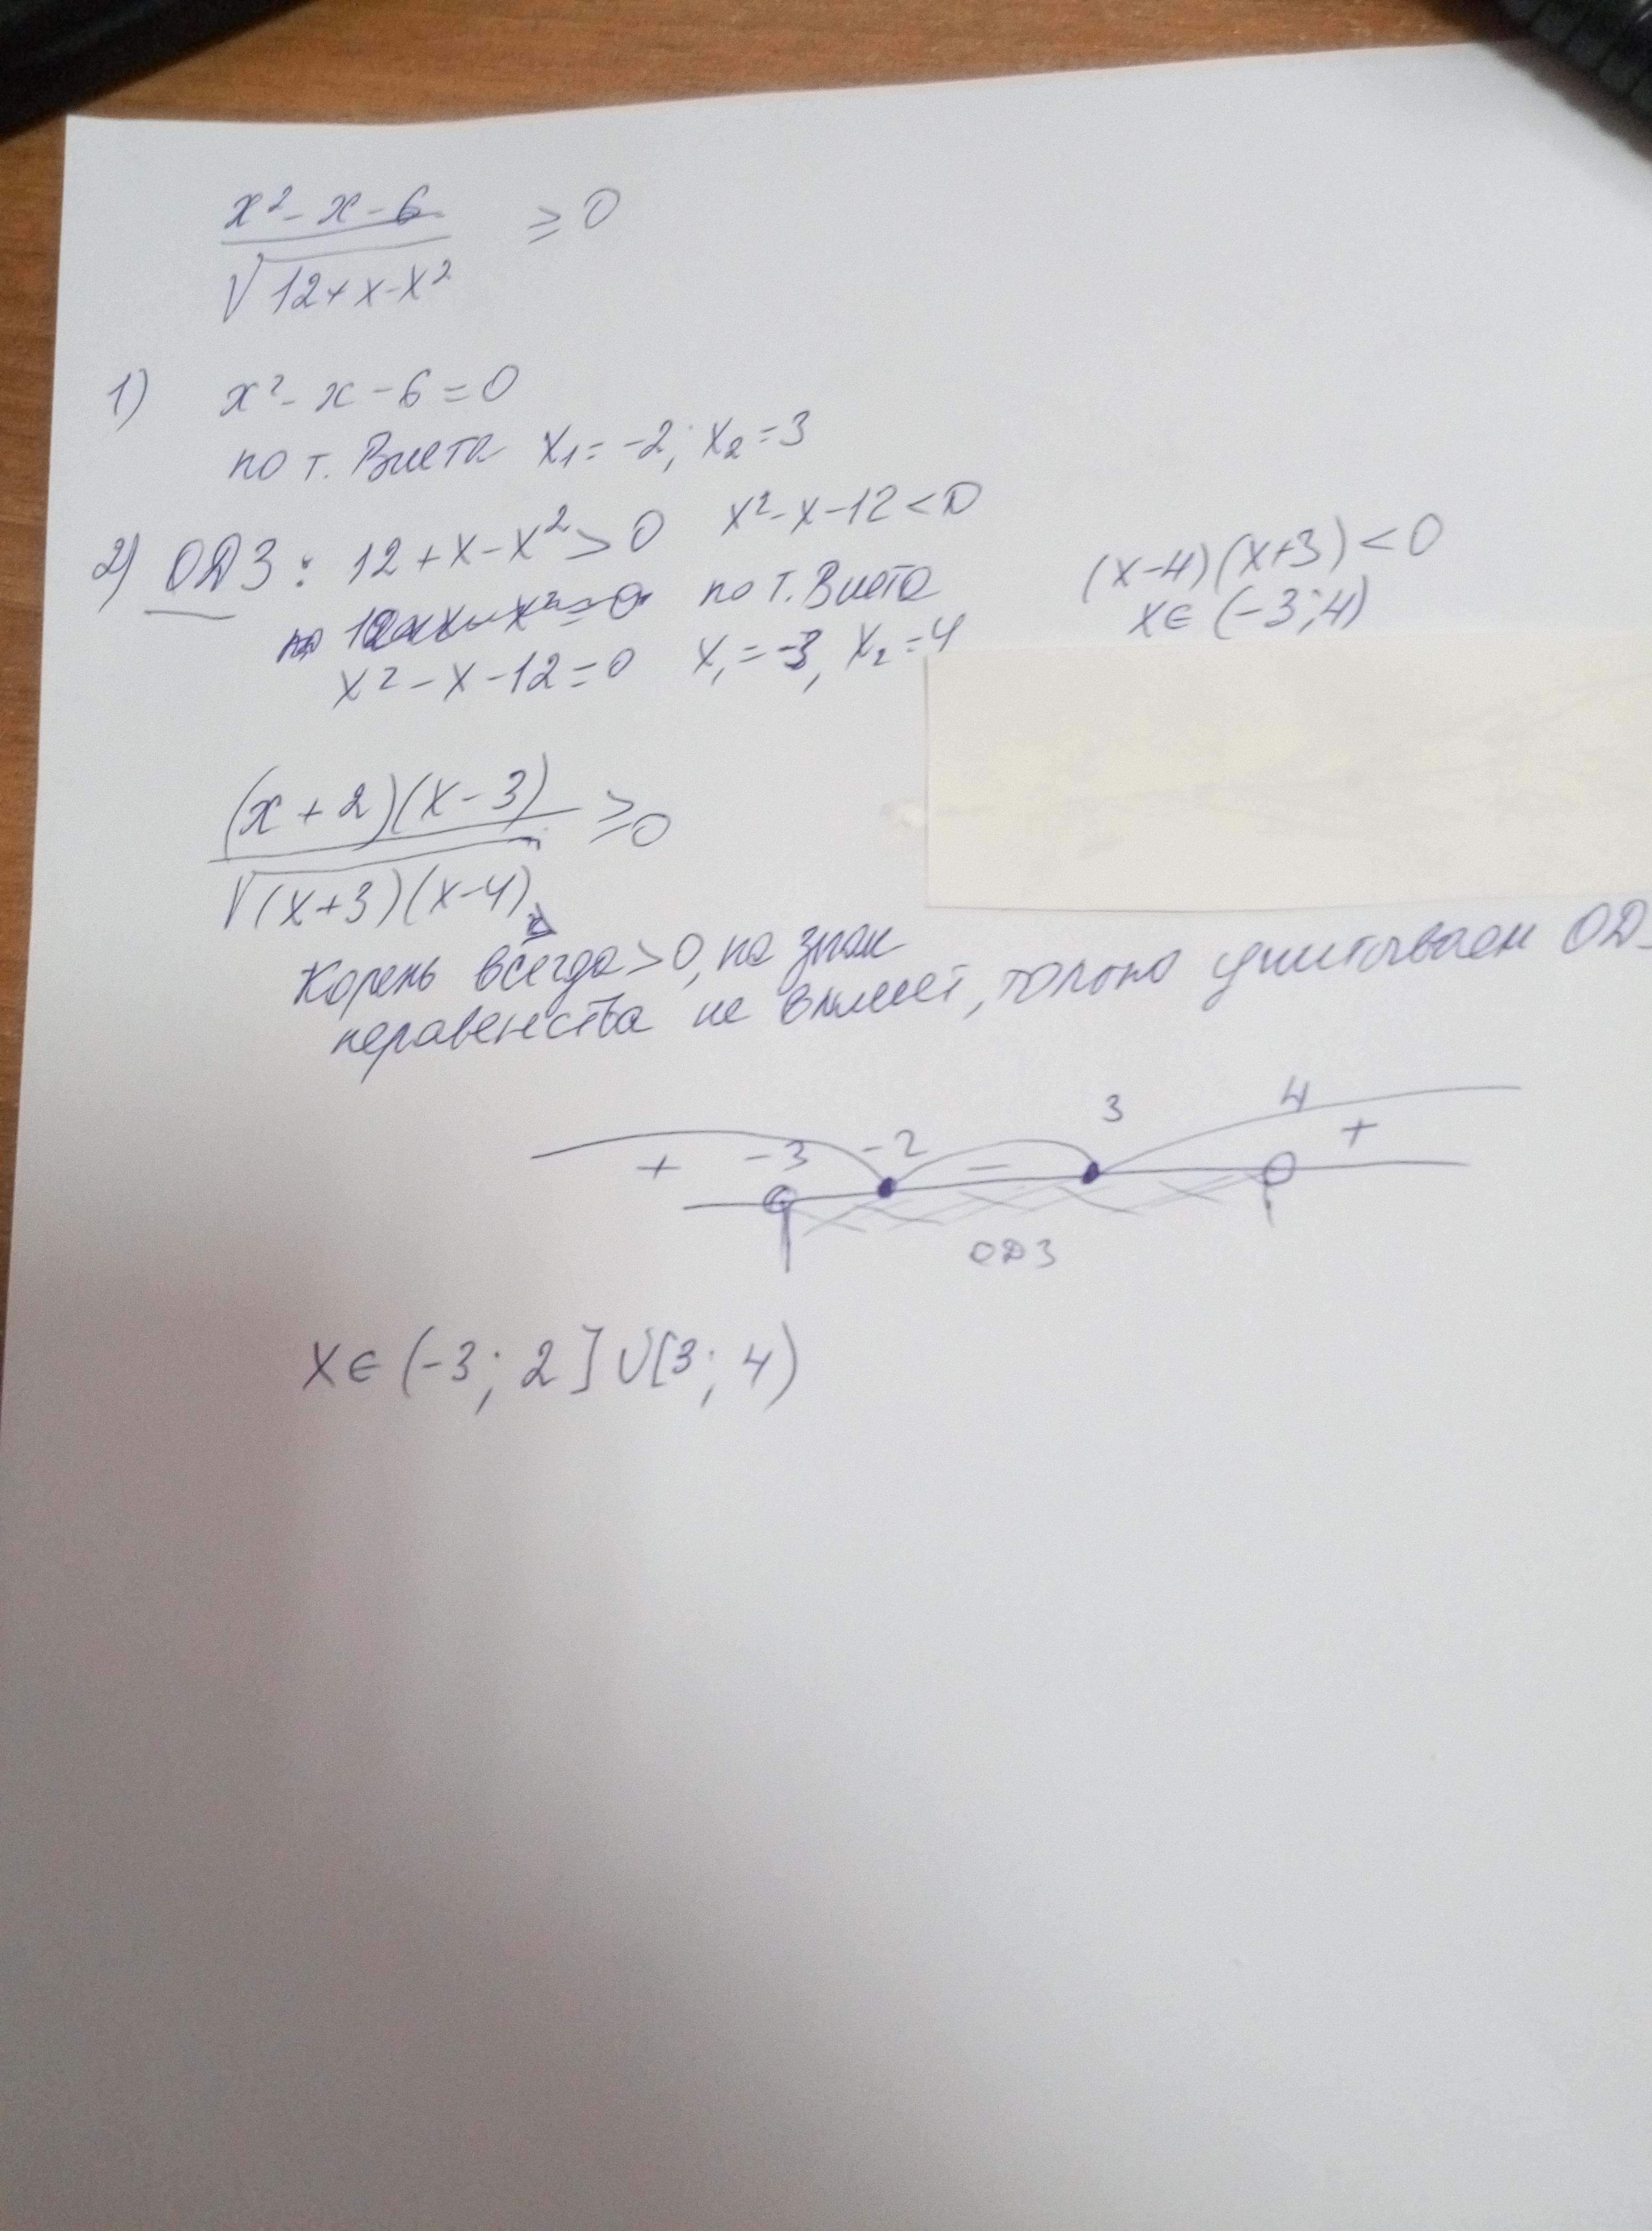 x² - x - 6
√12+x-x²
≥ 0
1) x² - x - 6 = 0
по т. Виета x₁ = -2; x₂ = 3
2) ОДЗ: 12 + x - x² > 0 x² - x - 12 < 0
по т. Виета
x² - x - 12 = 0 x₁ = -3, x₂ = 4
(x-4)(x+3) < 0
x ∈ (-3; 4)
(x+2)(x-3)
√(x+3)(x-4)
≥ 0
Корень всегда > 0, на знак
неравенства не влияет, только учитываем ОД
+ -3 -2 - 3 4 +
ОДЗ
x ∈ (-3; 2] ∪ [3; 4)